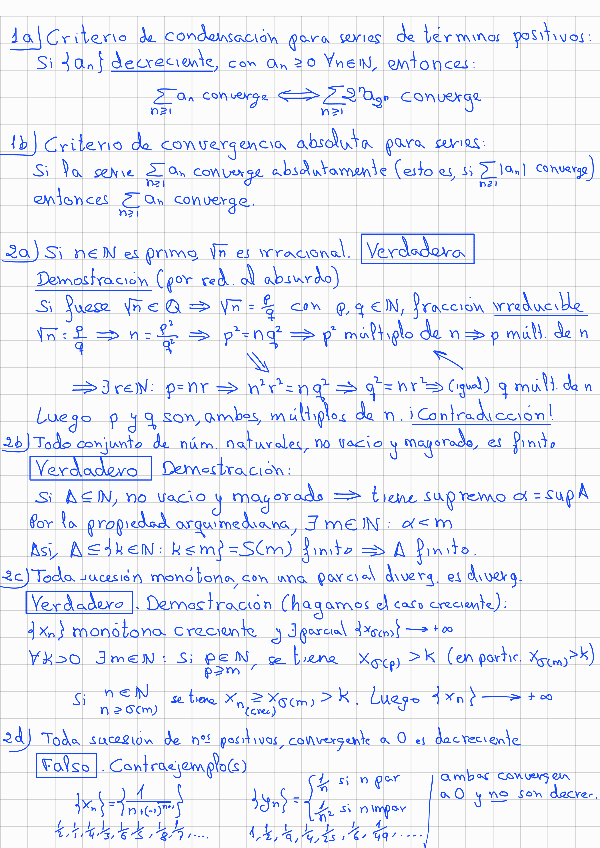 1a) Criterio de condensación para series de términos positivos:
Si {aₙ} decreciente, con aₙ ≥ 0 ∀n∈ℕ, entonces:
∑_{n≥1} aₙ converge ⟺ ∑_{n≥1} 2ⁿa_{2ⁿ} converge
1b) Criterio de convergencia absoluta para series:
Si la serie ∑_{n≥1} aₙ converge absolutamente (esto es, si ∑_{n≥1} |aₙ| converge)
entonces ∑_{n≥1} aₙ converge.
2a) Si n∈ℕ es primo, √n es irracional. Verdadera
Demostración (por red. al absurdo)
Si fuese √n ∈ ℚ ⇒ √n = p/q con p, q ∈ ℕ, fracción irreducible
√n = p/q ⇒ n = p²/q² ⇒ p² = nq² ⇒ p² múltiplo de n ⇒ p múlt. de n
⇒ ∃r∈ℕ: p=nr ⇒ n²r² = nq² ⇒ q² = nr² ⇒ (igual) q múlt. de n
Luego p y q son, ambos, múltiplos de n. ¡Contradicción!
2b) Todo conjunto de núm. naturales, no vacio y mayorado, es finito
Verdadero Demostración:
Si A⊆ℕ, no vacio y mayorado ⇒ tiene supremo α = sup A
Por la propiedad arquimediana, ∃ m∈ℕ: α < m
Así, A ⊆ {k∈ℕ: k≤m} = S(m) finito ⇒ A finito.
2c) Toda sucesión monótona, con una parcial diverg. es diverg.
Verdadero. Demostración (hagamos el caso creciente):
{xₙ} monótona creciente y ∃ parcial {x_{σ(n)}} → +∞
∀K>0 ∃m∈ℕ: Si p∈ℕ, p≥m, se tiene x_{σ(p)} > K (en partic. x_{σ(m)} > K)
Si n∈ℕ n≥σ(m) se tiene xₙ ≥ (crec) x_{σ(m)} > K. Luego {xₙ} → +∞
2d) Toda sucesión de nºs positivos, convergente a 0 es decreciente
Falso. Contraejemplo(s)
{xₙ} = {1/(n+(-1)ⁿ⁺¹)} {yₙ} = { 1/n si n par ambas convergen
1/n² si n impar a 0 y no son decrec.
1/2, 1/1, 1/4, 1/3, 1/6, 1/5, 1/8, 1/7, .... 1, 1/2, 1/9, 1/4, 1/25, 1/6, 1/49, .....